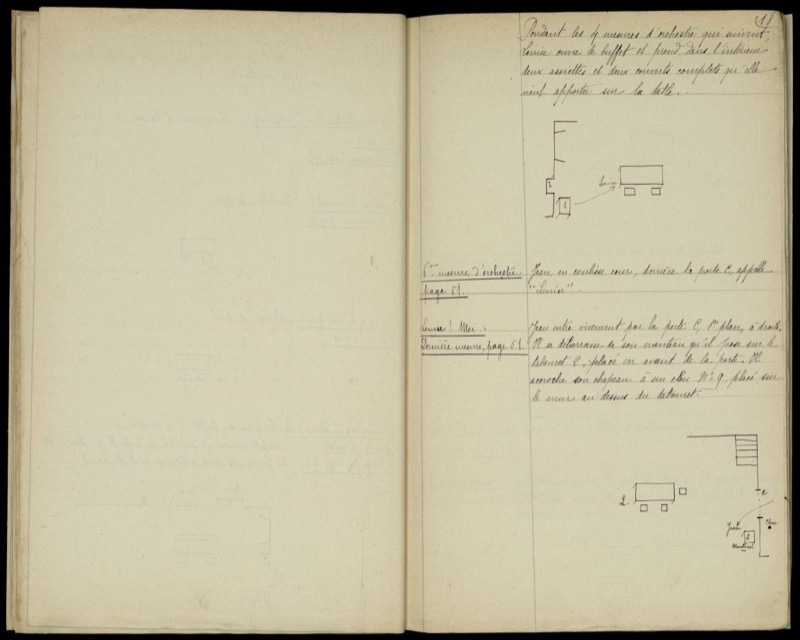 18
Pendant les 4 mesures d'orchestre qui suivent,
Louise ouvre le buffet et prend dans l'intérieur
deux assiettes et deux couverts complets qu'elle
vient apporter sur la table.
Louise
1
6ème mesure d'orchestre
page 51.
Jean, en coulisse cour, derrière la porte C, appelle
"Louise"
Louise! Moi :
Dernière mesure, page 51.
Jean entre vivement par la porte C, 1er plan, à droite.
Il se débarrasse de son manteau qu'il pose sur le
tabouret 2, placé en avant de la porte. Il
accroche son chapeau à un clou No 9 placé sur
le mur au dessus du tabouret.
L.
C
Jean
Clou
2
Manteau